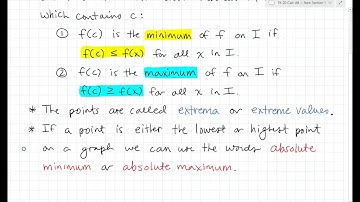 which contains c :
① f(c) is the minimum of f on I if
f(c) ≤ f(x) for all x in I.
② f(c) is the maximum of f on I if
f(c) ≥ f(x) for all x in I.
* The points are called extrema or extreme values.
* If a point is either the lowest or highest point
on a graph we can use the words absolute
minimum or absolute maximum.